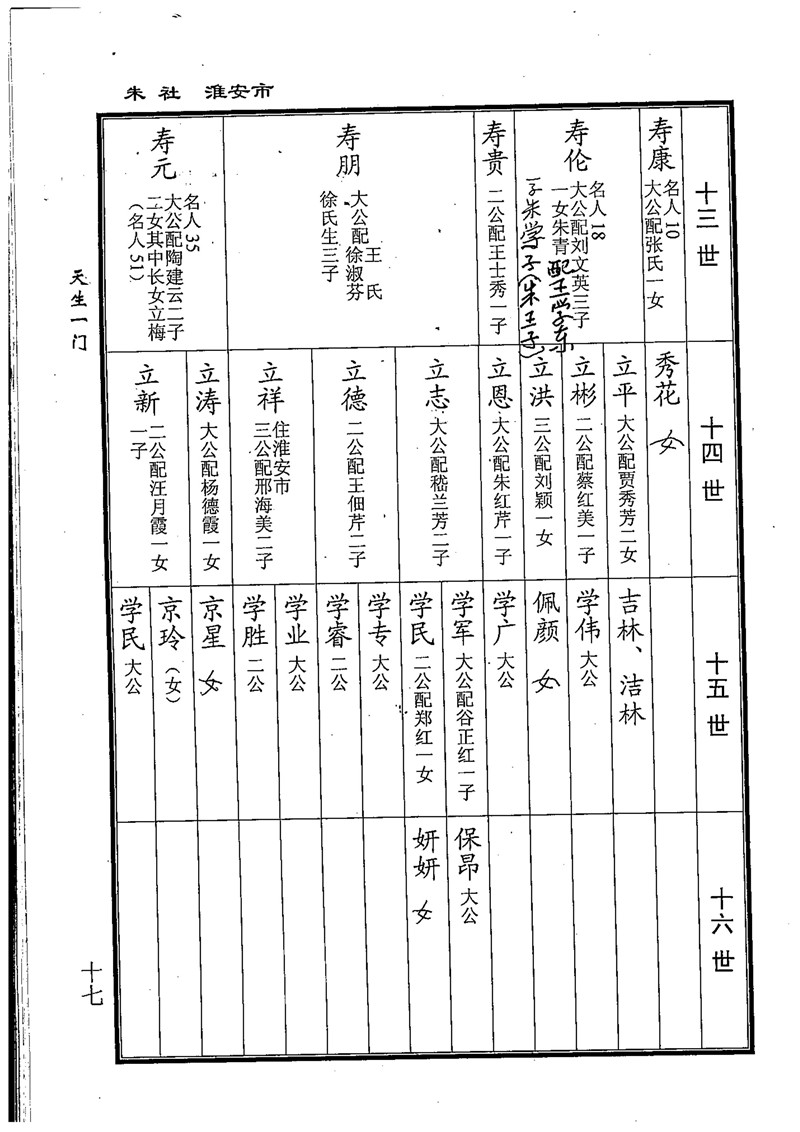 朱社 淮安市
十三世
寿康
名人10
大公配张氏一女
寿伦
名人18
大公配刘文英三子
一女朱青配王学东
一子朱学子（朱王子）
寿贵
二公配王士秀一子
寿朋
大公配王氏
徐淑芬
徐氏生三子
寿元
名人35
大公配陶建云二子
二女其中长女立梅
（名人51）
十四世
秀花
女
立平
大公配贾秀芳二女
立彬
二公配蔡红美一子
立洪
三公配刘颖一女
立恩
大公配朱红芹一子
立志
大公配嵇兰芳二子
立德
二公配王佃芹二子
立祥
住淮安市
三公配邢海美二子
立涛
大公配杨德霞一女
立新
二公配汪月霞一女
一子
十五世
吉林、洁林
学伟
大公
佩颜
女
学广
大公
学军
大公配谷正红一子
学民
二公配郑红一女
学专
大公
学睿
二公
学业
大公
学胜
二公
京星
女
京玲
（女）
学民
大公
十六世
保昂
大公
妍妍
女
天生一门
十七